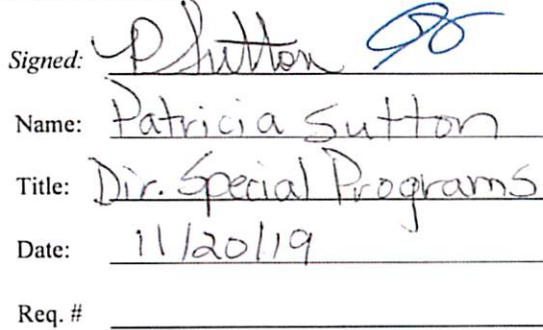 Signed: P Sutton
Name: Patricia Sutton
Title: Dir. Special Programs
Date: 11/20/19
Req. #